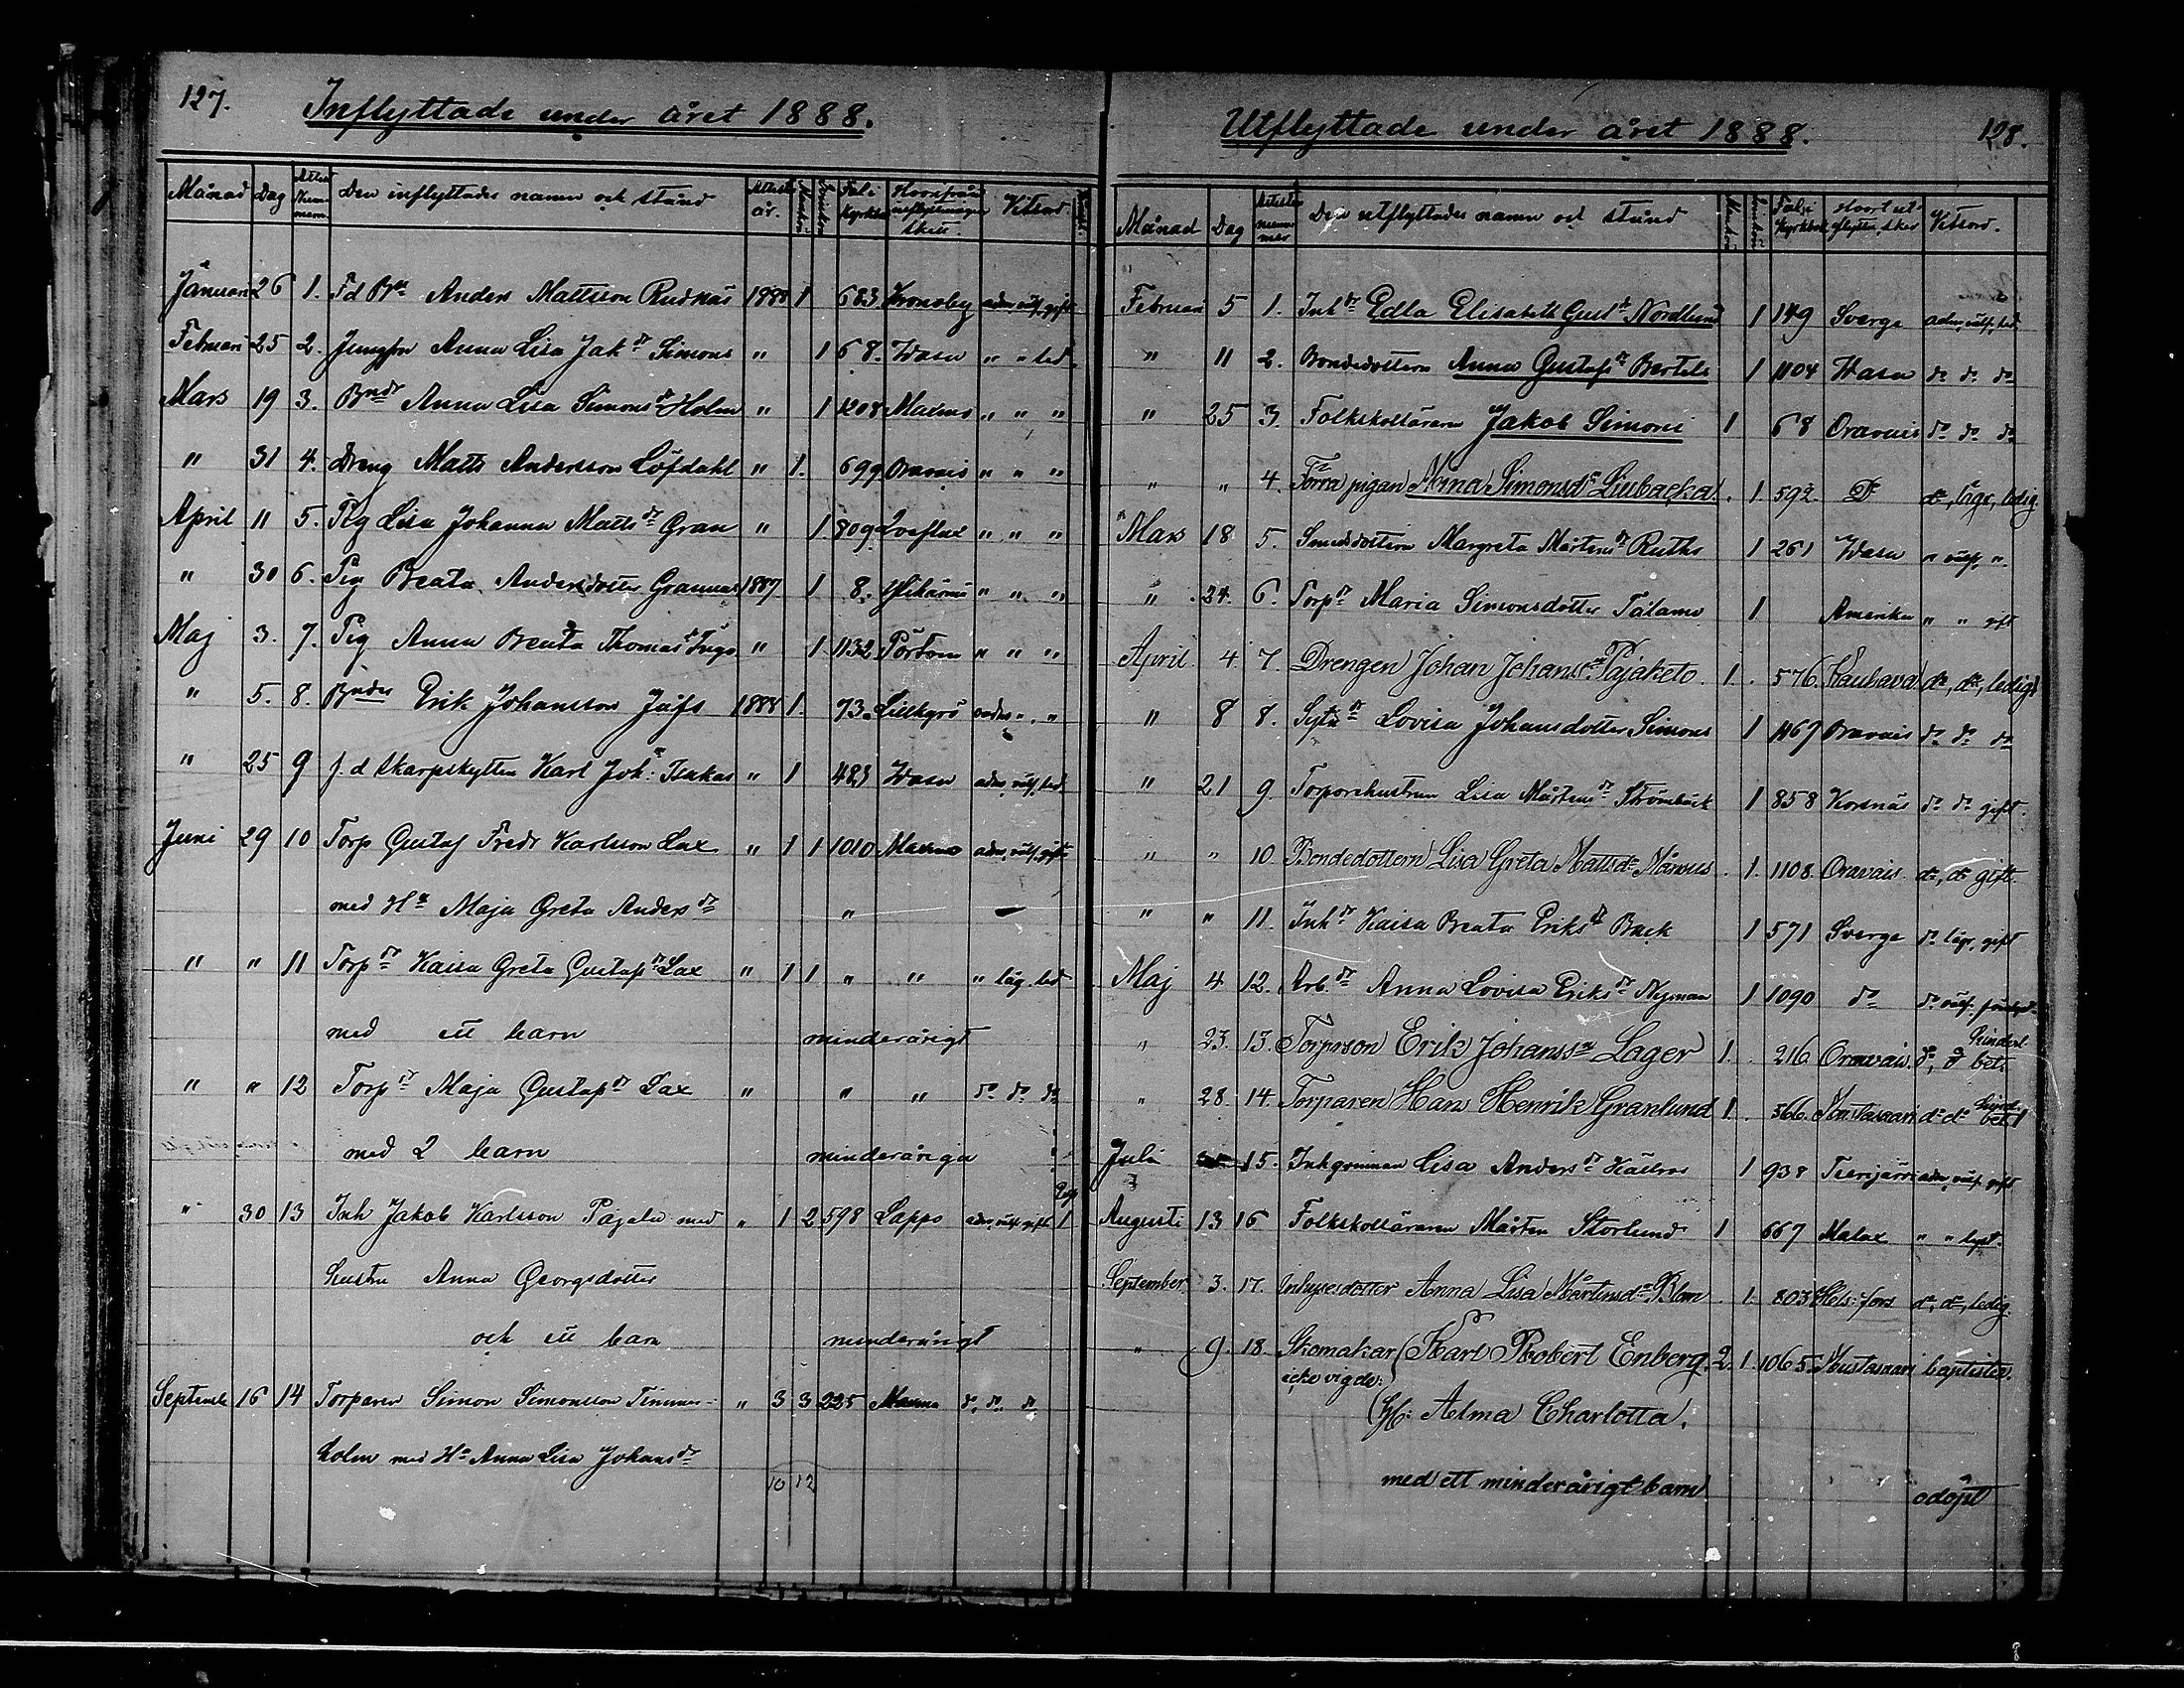 127.
Inflyttade under året 1888.
Månad Dag Attest Nummern Den inflyttades namn och stånd Attest år. Mankön Qvinkön Fol. i Kyrkbok Hvarifrån inflyttningen sker Vitsord
Januari 26 1. Fd Bn Anders Mattsson Rudnäs 1888 1 683 Kronoby adm, välf, gift
Februari 25 2. Jungfru Anna Lisa Jak dr Simons " 1 68. Wasa " " led.
Mars 19 3. Bndr Anna Lisa Simons dr Holm " 1 1208 Maxmo " " "
" 31 4. Dreng Matts Andersson Löfdahl " 1. 699 Oravais " " "
April 11 5. Pig Lisa Johanna Matts dr Gran " 1. 809 Qveflax " " "
" 30 6. Pig Beata Andersdotter Grannas 1887 1 8. Ylihärmä " " "
Maj 3. 7. Pig Anna Beata Thomas dr Ingo " 1 1132 Pörtom " " "
" 5. 8. Bndes Erik Johansson Jåfs 1888 1. 73. Lillkyrö " "
" 25 9 f. d skarpskytten Karl Joh: Isakas " 1 483 Wasa adm, välf, led
Juni 29 10 Torp Gustaf Fredr Karlsson Lax " 1 1 1010 Maxmo adm, välf, gift
med Hu Maja Greta Anders dr "
" " 11 Torp dr Kaisa Greta Gustafs dr Lax " 1 1 " " " låg. led
med ett barn minderårigt
" " 12 Torp dr Maja Gustafs dr Lax " " " do do do
med 2 barn minderåriga
" 30 13 Inh Jakob Karlsson Pajala med " 1 2 598 Lappo adm, välf. gift 1
hustru Anna Georgsdotter
och ett barn minderårigt
Septemb 16 14 Torparen Simon Simonsson Timmer- " 3 3 225 Maxmo do. do. do.
holm med Hu Anna Lisa Johans dr
10 12
Utflyttade under året 1888.
128.
Månad Dag Attestnummer Den utflyttades namn och stånd Mankön Qvinkön Fol. i Kyrkbok Hvart utflyttn. sker Vitsord.
Februari 5 1. Inh dr Edla Elisabeth Gust dr Nordlund 1 149 Sverge adm, välf, led.
" 11 2. Bondedottern Anna Gustafs dr Bertils 1 1104 Wasa do do do
" 25 3. Folkskolläraren Jakob Simons 1 68 Oravais do do do
" " 4. Förra pigan Anna Simonsdr Liubacka. 1. 592. Do do, låge, ledig.
" Mars 18 5. Smedsdottern Margreta Mårtens dr Ruths 1 261 Wasa " välf, "
" 24. 6. Torp dr Maria Simonsdotter Tålamo 1 Amerika " " gift
April 4. 7. Drengen Johan Johanss. Pajaketo. 1. 576. Kauhava do, do, ledig
" 8 8. Sytn dr Lovisa Johansdotter Simons 1 1167 Oravais do do do
" 21 9. Torparehustrun Lisa Mårtens dr Strömbäck 1 858 Korsnäs do do gift.
" " 10. Bondedottern Lisa Greta Mattsdr Måsus. 1. 1108. Oravais. do, do gift.
" " 11. Inh dr Kaisa Beata Eriks dr Back 1 571 Sverge do låg, gift
Maj 4 12. Arb dr Anna Lovisa Eriks dr Nyman 1 1090 do do välf.
" 23. 13. Torpsson Erik Johanss. Lager 1. 216 Oravais. do, do hinderl. bet.
" 28. 14. Torparen Hans Henrik Granlund 1. 366. Mustasaari do do hind. bet.
Juli 15. Inhqvinnan Lisa Anders dr Källros 1 938 Terijärvi adm, välf. gift
Augusti 13 16 Folkskolläraren Mårten Storlund 1 667 Malax " "
September 3. 17. Inhysesdotter Anna Lisa Mårtensdr Blom. 1. 803 Hels:fors do, do, ledig.
" 9. 18. Skomakar (Karl Robert Enberg. 2. 1. 1065. Mustasaari baptister.
icke vigde:
(H: Aelma Charlotta.
med ett minderårigt barn odöpt